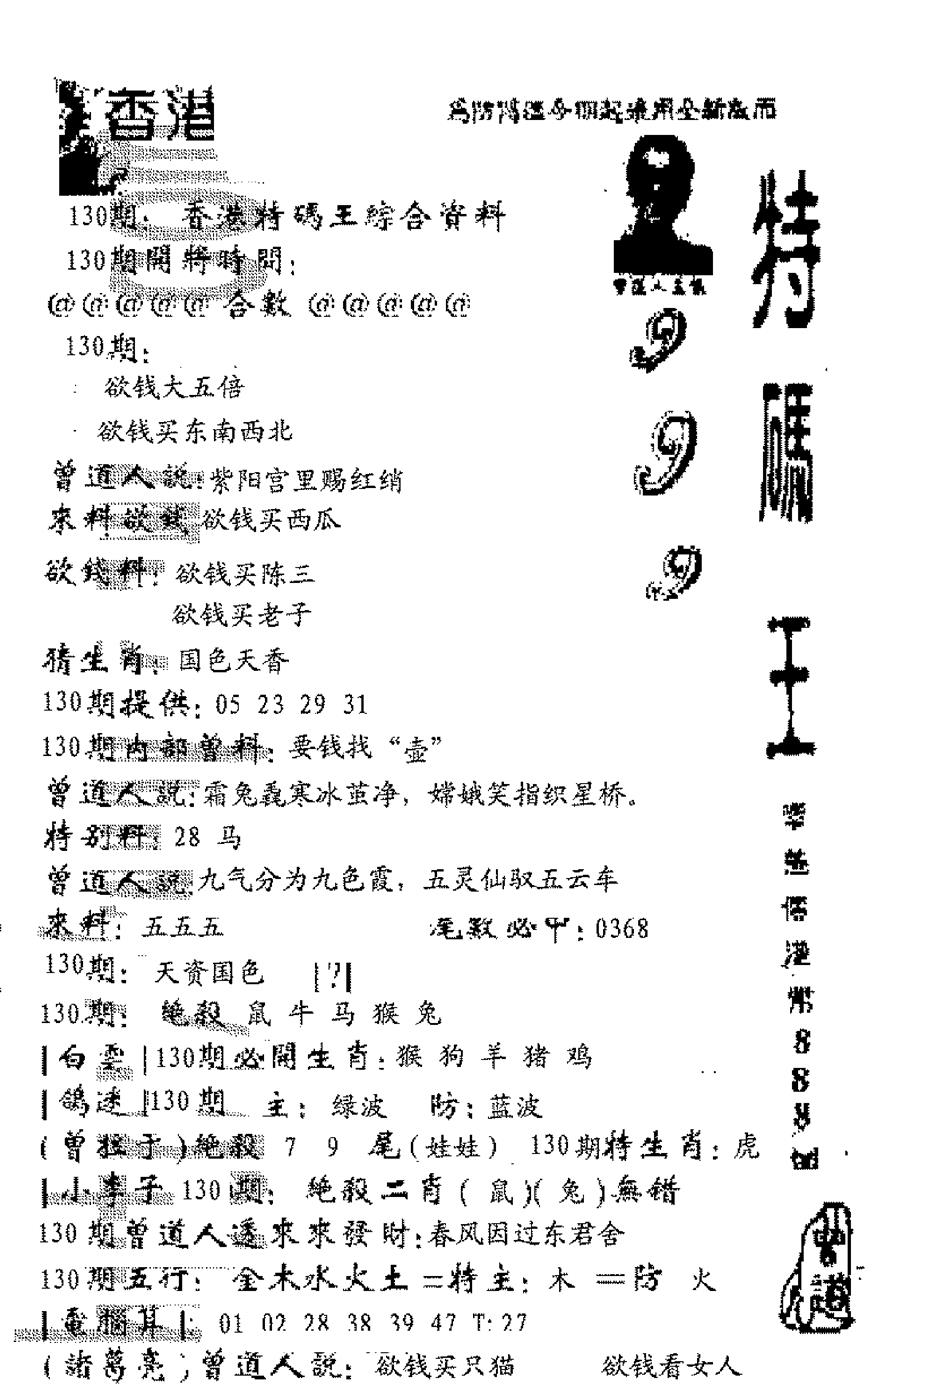 香港
為防隔混今期起采用全新版面
130期: 香港特碼王綜合資料
130期開將時間:
@@@@@ 合數 @@@@@
130期:
欲钱大五倍
欲钱买东南西北
曾道人説:紫阳宫里赐红绡
來料欲钱 欲钱买西瓜
欲錢料: 欲钱买陈三
欲钱买老子
猜生肖: 国色天香
130期提供: 05 23 29 31
130期内部曾料: 要钱找“壶”
曾道人説:霜兔毳寒冰茧净，嫦娥笑指织星桥。
特别料: 28 马
曾道人説:九气分为九色霞，五灵仙驭五云车
來料: 五五五 尾數必中:0368
130期: 天资国色 |?|
130期: 绝殺 鼠 牛 马 猴 兔
|白雲|130期必開生肖:猴 狗 羊 猪 鸡
|鴿迷|130期 主: 绿波 防:蓝波
(曾 于)绝殺 7 9 尾(娃娃) 130期特生肖:虎
|小李子 130期: 绝殺二肖(鼠)(兔)無错
130期曾道人透來來發財:春风因过东君舍
130期五行: 金木水火土=特主: 木 =防 火
|電腦算|: 01 02 28 38 39 47 T:27
(諸葛亮)曾道人説: 欲钱买只猫 欲钱看女人
曾道人
9
9
9
特
碼
王
港
幣
8
8
8
曾道